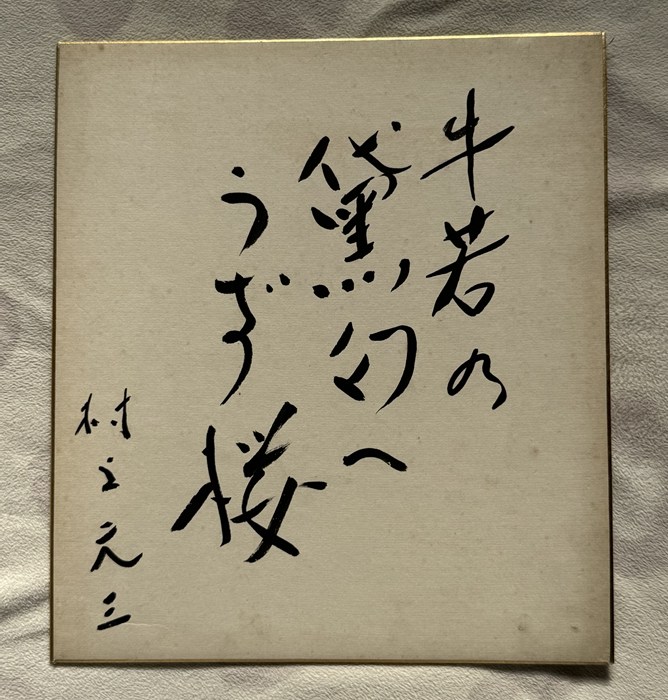 牛若の
黛匂へ
うず桜
村上元三